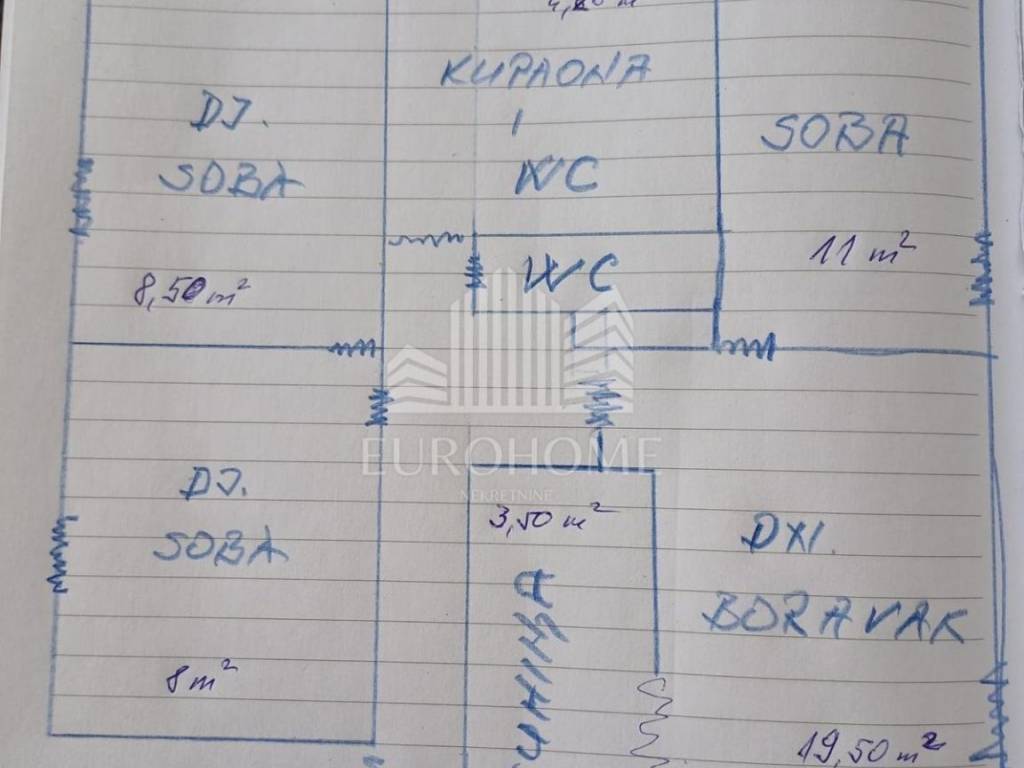 KUPAONA
I
WC
DJ.
SOBA
SOBA
11 m²
WC
8,50 m²
EUROHOME
NEKRETNINE
DJ.
SOBA
3,50 m²
8 m²
BORAVAK
19,50 m²